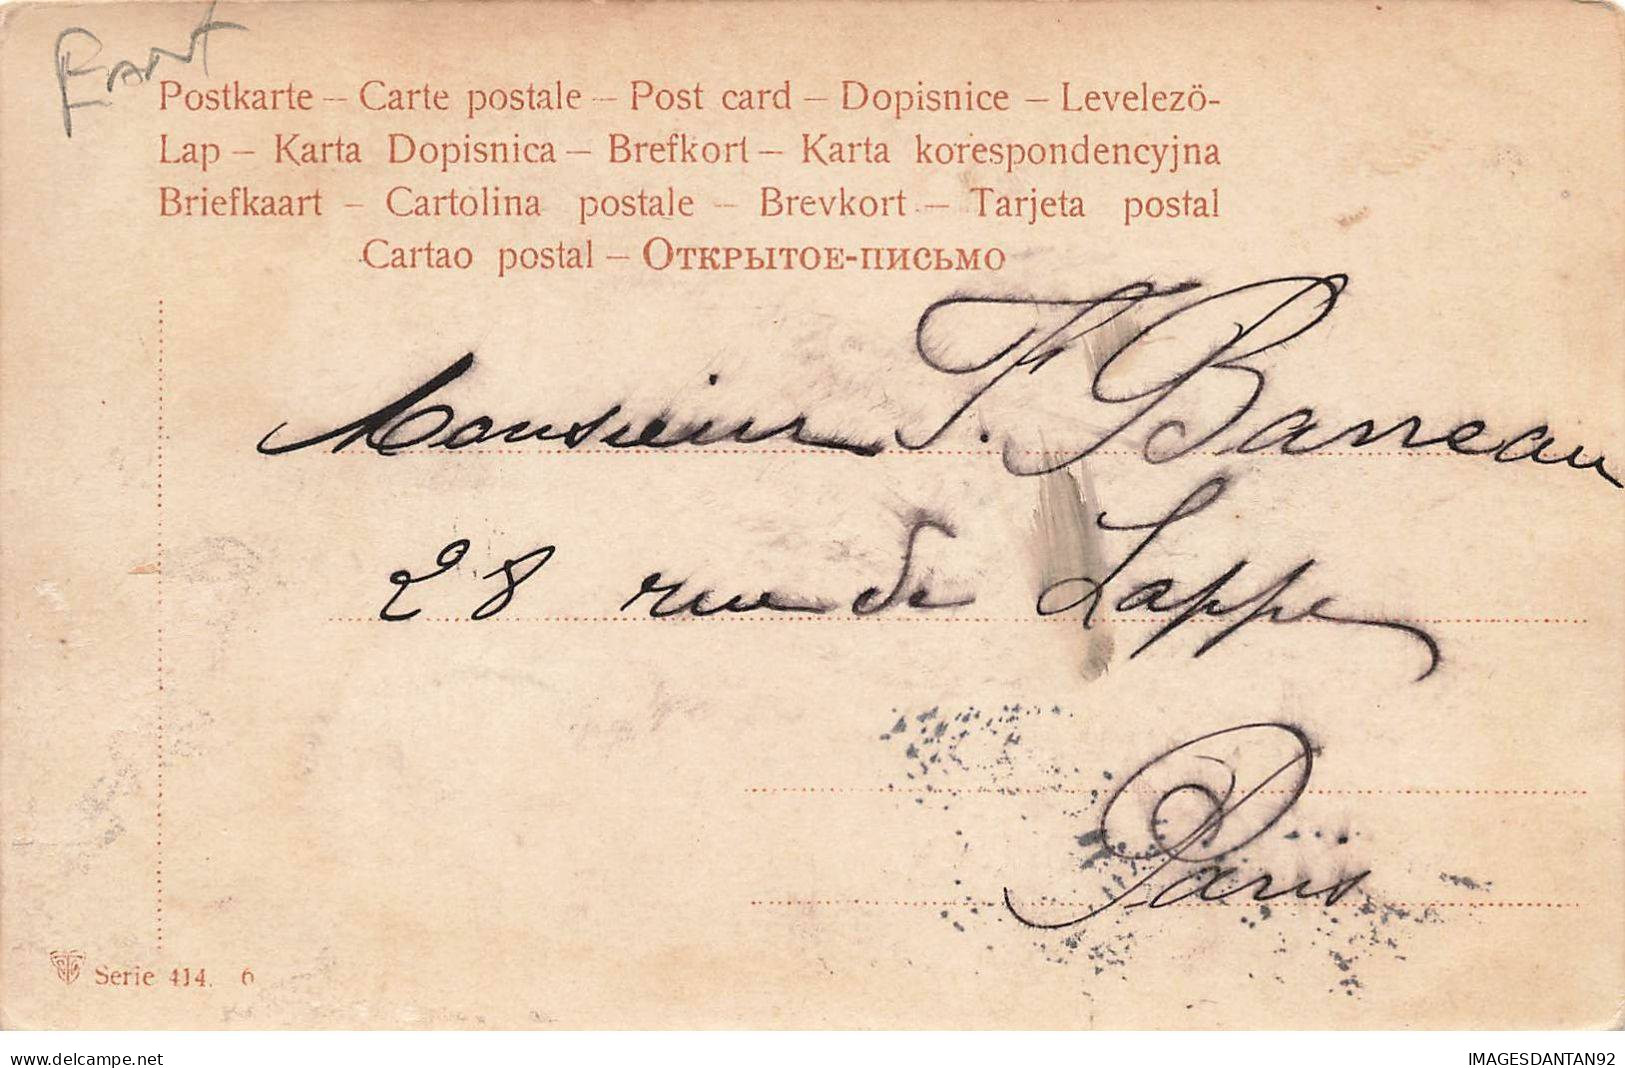 Postkarte – Carte postale – Post card – Dopisnice – Levelezö-
Lap – Karta Dopisnica – Brefkort – Karta korespondencyjna
Briefkaart – Cartolina postale – Brevkort – Tarjeta postal
Cartao postal – Открытое-письмо
Monsieur F. Barreau
28 rue de Lappe
Paris
Serie 414. 6
www.delcampe.net
IMAGESDANTAN92